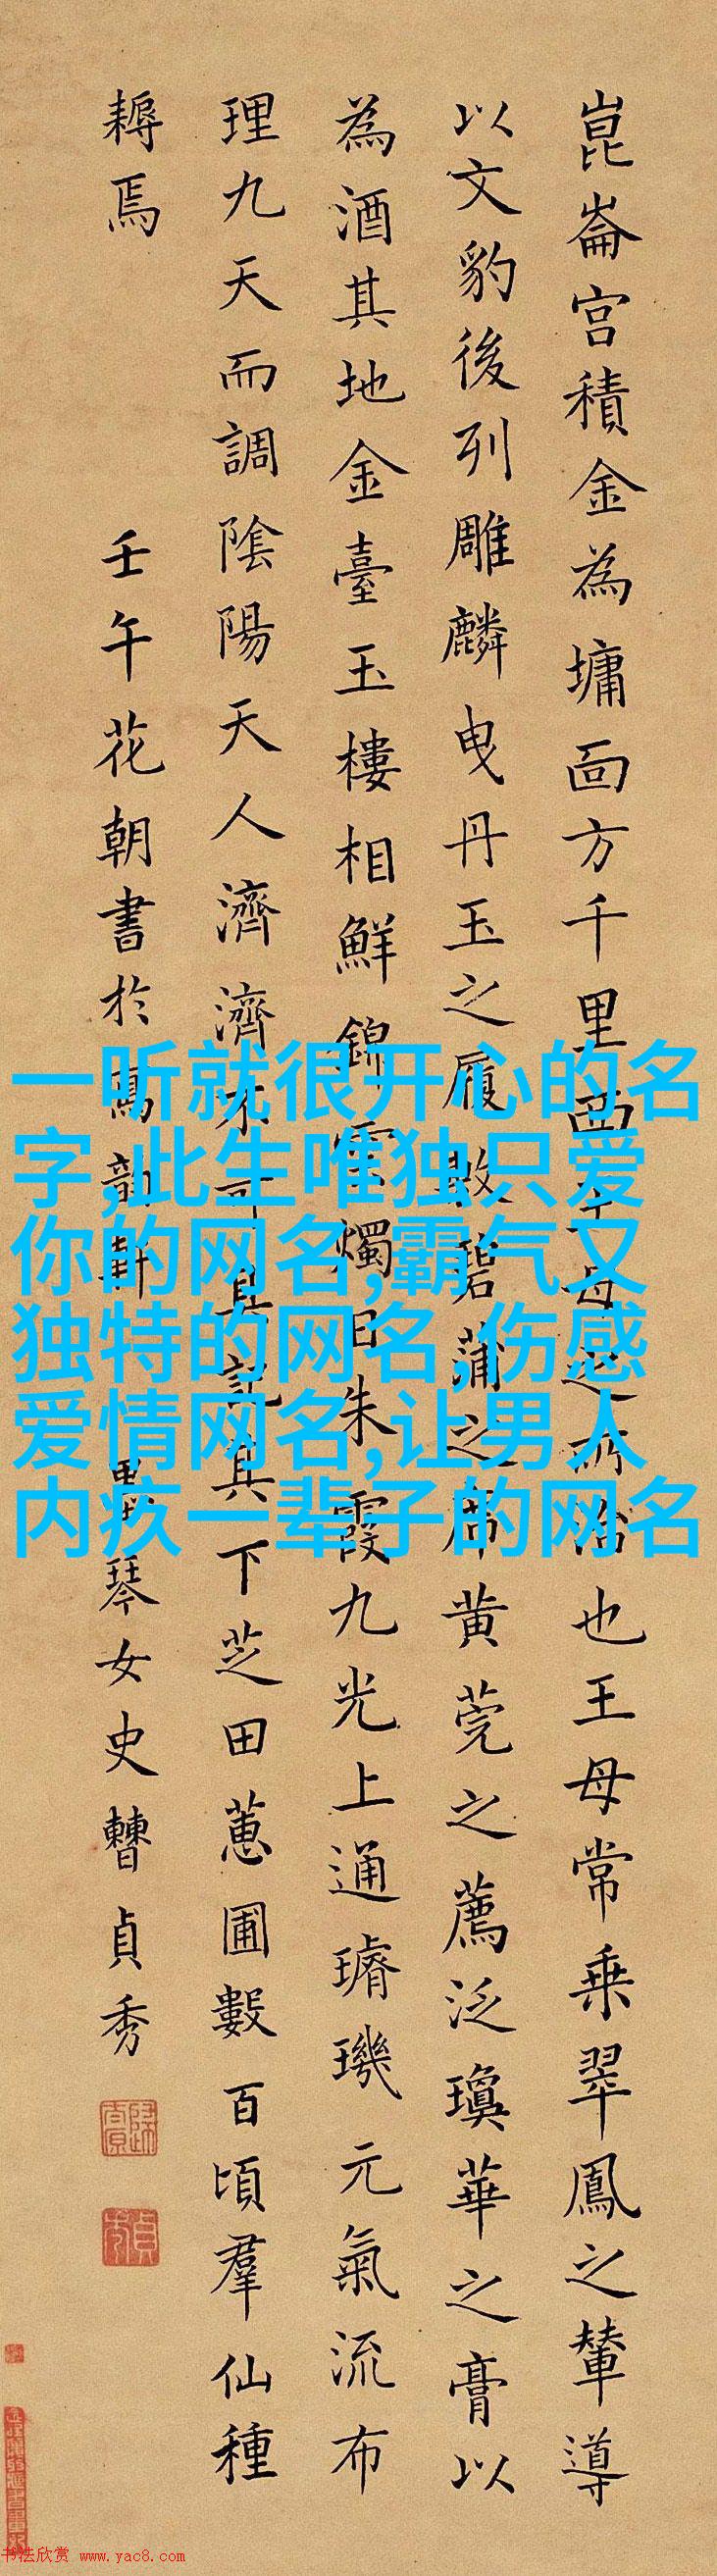 崑崙宮積金為墉面方千里西王母之所治也王母常乘翠鳳之輦導
以文豹後列雕麟曳丹玉之履敷碧蒲之席黃莞之薦泛瓊華之膏以
為酒其地金臺玉樓相鮮錦雲燭日朱霞九光上通璿璣元氣流布
理九天而調陰陽天人濟濟不可具記其下芝田蕙圃數百頃羣仙種
耨焉
壬午花朝書於寫韻軒 墨琴女史曹貞秀
一听就很开心的名
字,此生唯独只爱
你的网名,霸气又
独特的网名,伤感
爱情网名,让男人
内疚一辈子的网名
书法欣赏 www.yac8.com